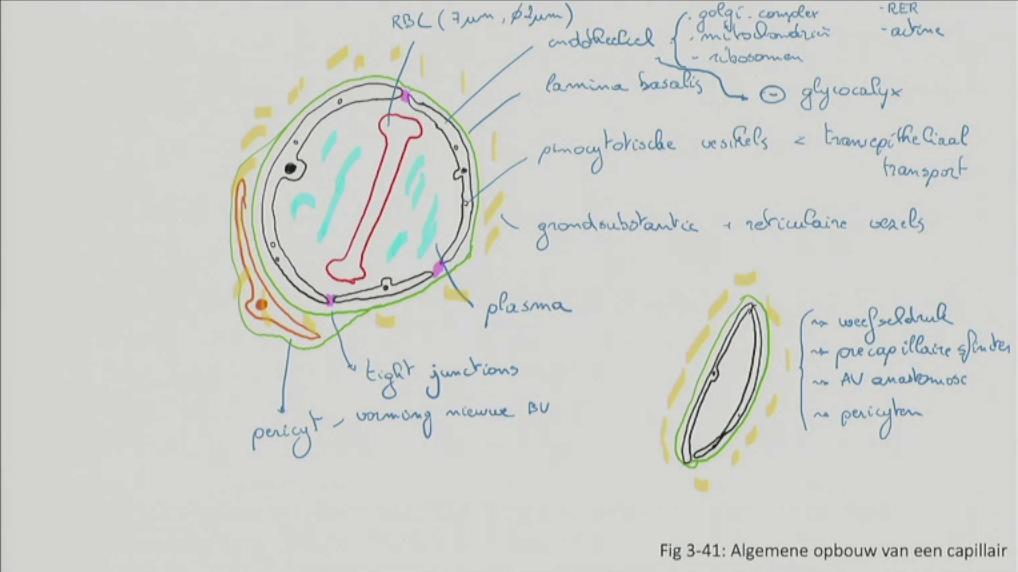 RBC (7µm, ø2µm)
endotheel
· golgi-complex
· mitochondriën
- ribosomen
- RER
- actine
lamina basalis
⊖ glycocalyx
pinocytotische vesikels < transepitheliaal
transport
grondsubstantie + reticulaire vezels
plasma
tight junctions
pericyt - vorming nieuwe BV
→ weefseldruk
→ precapillaire sfincter
→ AV anastomose
→ pericyten
Fig 3-41: Algemene opbouw van een capillair